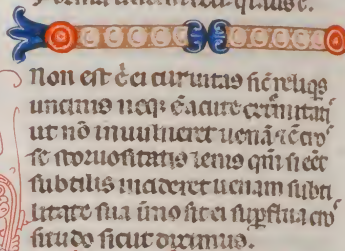 Non est ĉ ei curuitas sic̄ reliq̄s
uncinis neq; ē acute
ut nō inuulneret uenā ⁊ ē cro
se storiositatis lenis qm̄ si eēt
subtilis incideret uenam subti
litate sua īmo sit ei suꝑflua cro
situdo sicut diximus.